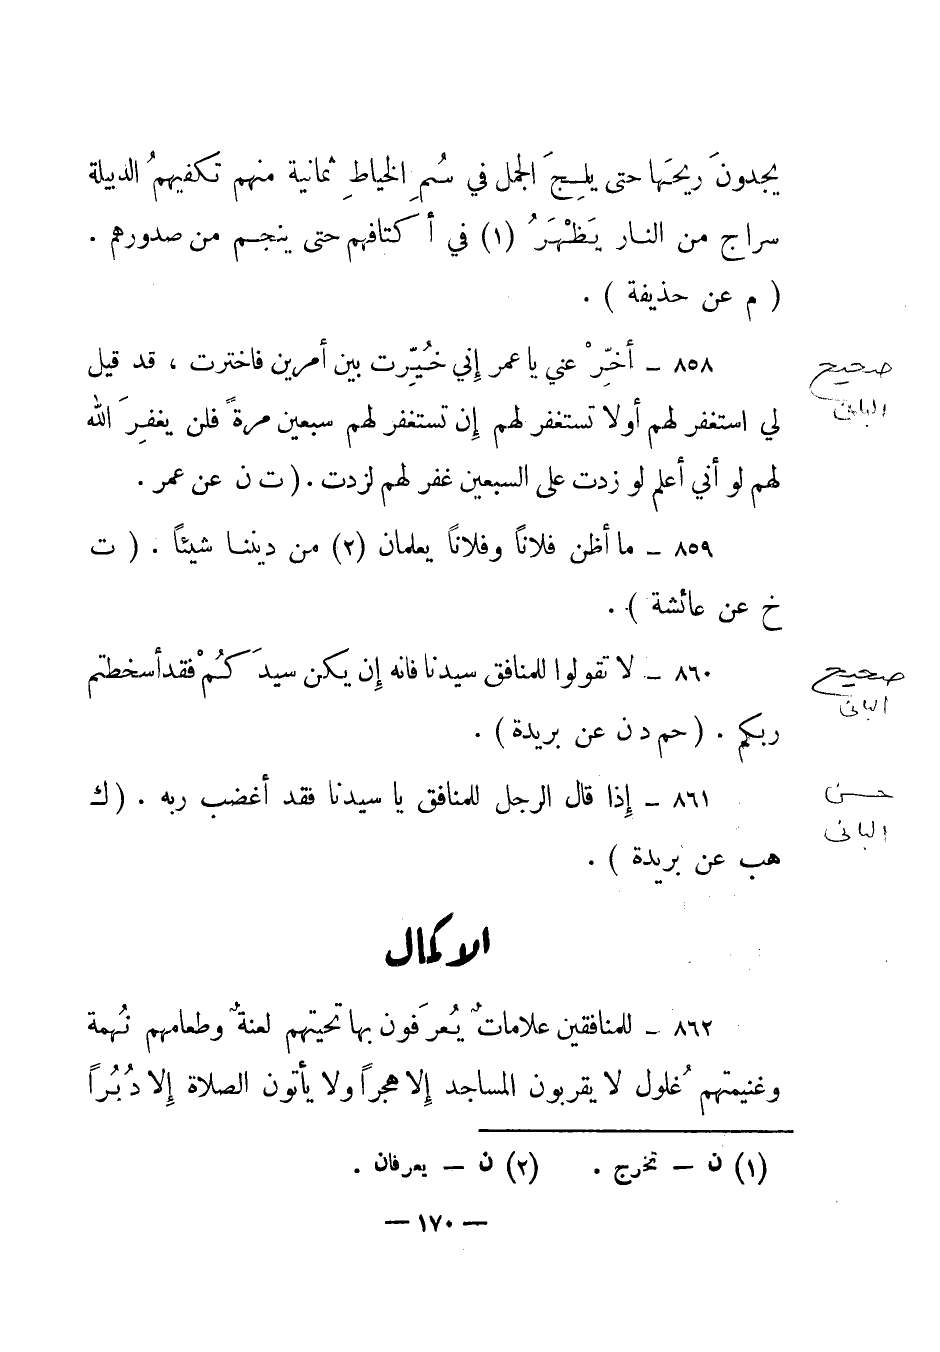 يجدونَ ريحَها حتى يلِجَ الجمل في سُمِ الخياطِ ثمانية منهم تكفيهمُ الدبيلة
سراج من النار يَظْهَرُ (١) في أكتافهم حتى ينجم من صدورهم .
( م عن حذيفة ) .
٨٥٨ – أخّرْ عني يا عمر إني خُيّرت بين أمرين فاخترت ، قد قيل
صحيح
لي استغفر لهم أولا تستغفر لهم إن تستغفر لهم سبعين مرةً فلن يغفرَ الله
البانى
لهم لو أني أعلم لو زدت على السبعين غفر لهم لزدت . ( ت ن عن عمر .
٨٥٩ – ما أظن فلاناً وفلاناً يعلمان (٢) من ديننا شيئاً . ( ت
خ عن عائشة ) .
٨٦٠ – لا تقولوا للمنافق سيدنا فانه إن يكن سيدَكُمْ فقد أسخطتم
صحيح
البانى
ربكم . ( حم د ن عن بريدة ) .
٨٦١ – إذا قال الرجل للمنافق يا سيدنا فقد أغضب ربه . ( ك
حسن
البانى
هب عن بريدة ) .
الاكمال
٨٦٢ – للمنافقين علاماتٌ يُعرَفون بها تحيتهم لعنةٌ وطعامهم نُهمة
وغنيمتهم غُلول لا يقربون المساجد إلا هجراً ولا يأتون الصلاة إلا دُبُراً
(١) ن – تخرج . (٢) ن – يعرفان .
– ١٧٠ –